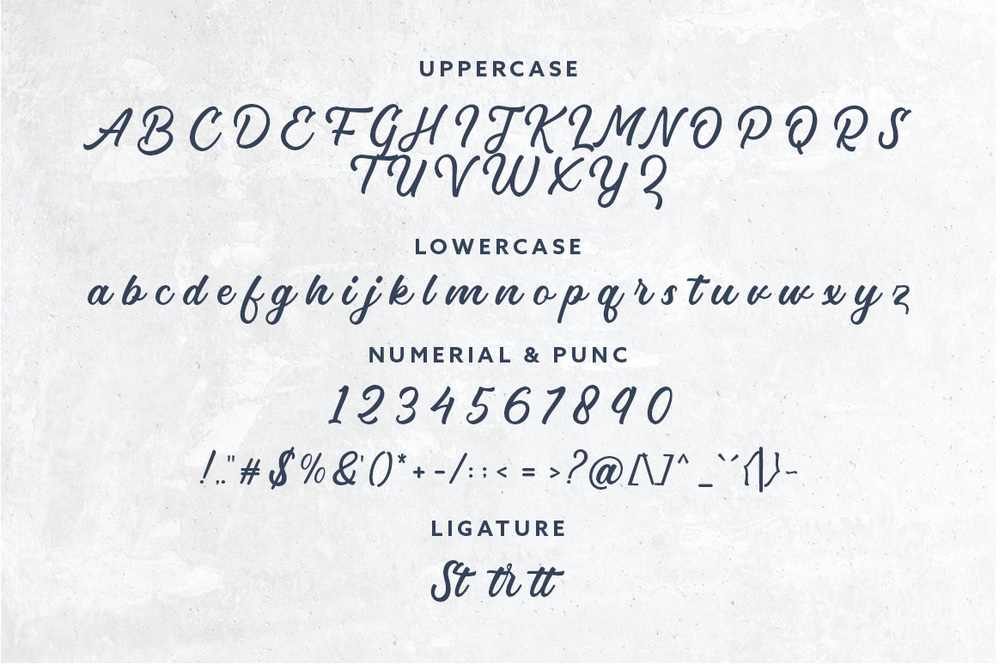 UPPERCASE
A B C D E F G H I J K L M N O P Q R S
T U V W X Y Z
LOWERCASE
a b c d e f g h i j k l m n o p q r s t u v w x y z
NUMERIAL & PUNC
1 2 3 4 5 6 7 8 9 0
! . , " # $ % & ' ( ) * + - / : ; < = > ? @ [ \ ] ^ _ ` ´ { | } ~
LIGATURE
St tr tt